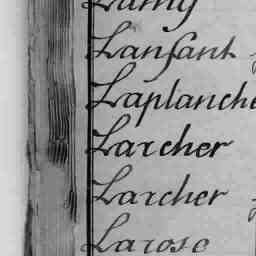 Lamy
Lanfant
Laplanche
Larcher
Larcher
Larose